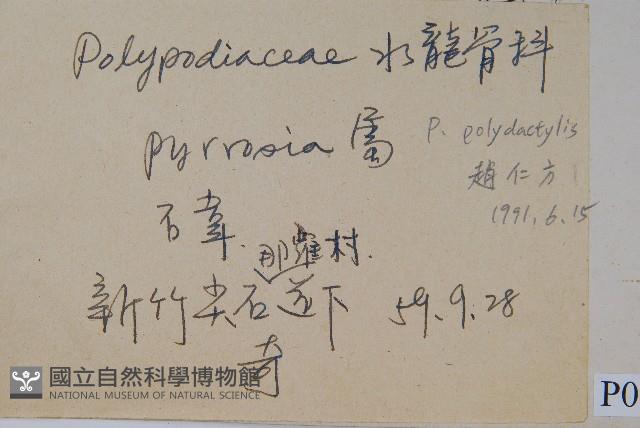 Polypodiaceae 水龍骨科
pyrrosia 屬
P. polydactylis
趙仁方
1991.6.15
石韋.
那羅村.
新竹尖石道下 59.9.28
奇
國立自然科學博物館
NATIONAL MUSEUM OF NATURAL SCIENCE
P0